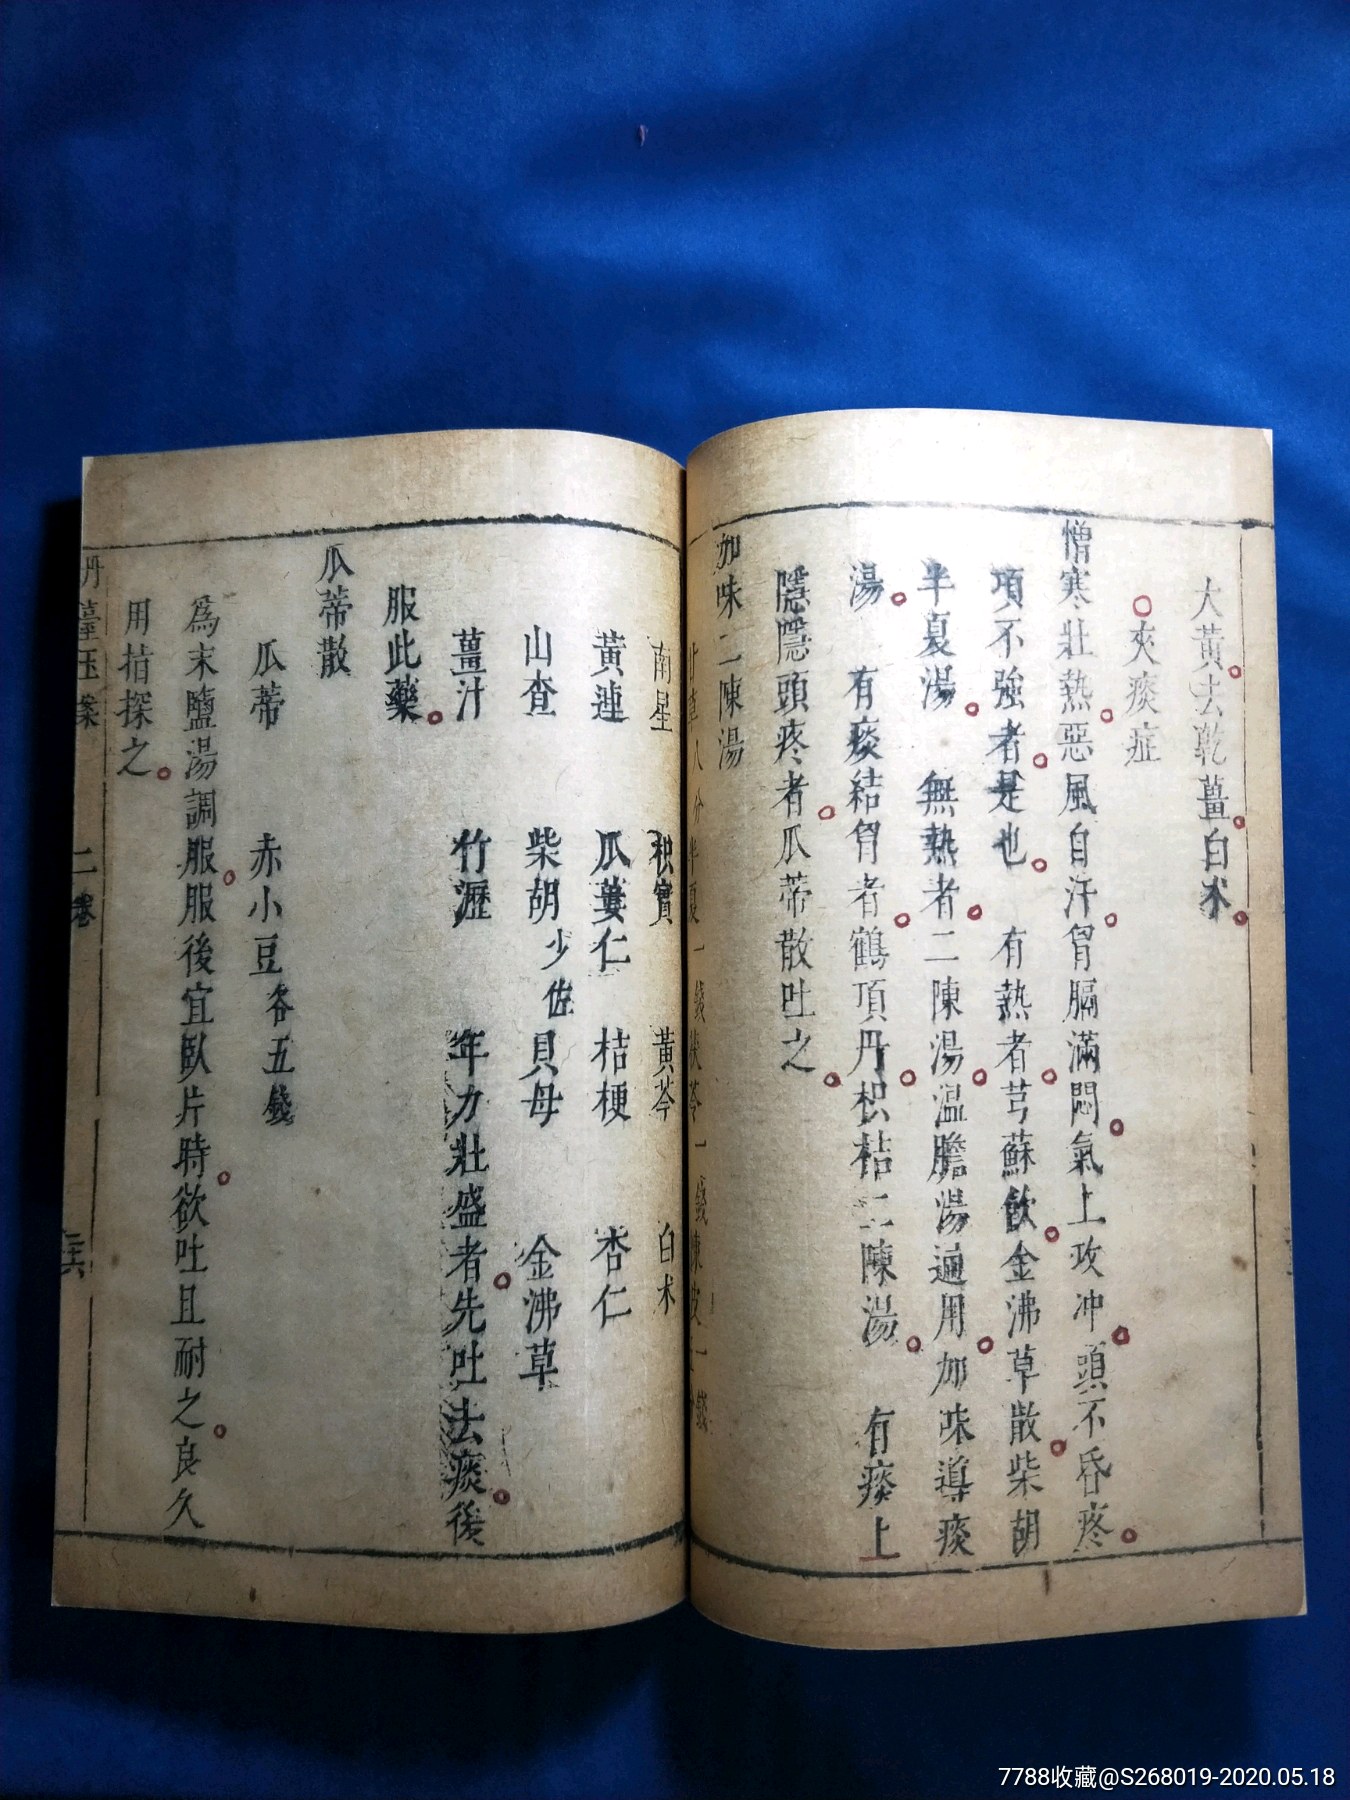 大黃去乾薑白朮
夾痰症
憎寒壯熱惡風自汗胷膈滿悶氣上攻冲頭不昏疼
項不強者是也 有熱者芎蘇飲金沸草散柴胡
半夏湯 無熱者二陳湯溫膽湯適用加味導痰
湯 有痰結胷者鶴頂丹枳桔二陳湯 有痰上
隱隱頭疼者瓜蒂散吐之
加味二陳湯
甘草八分半夏一錢茯苓一錢陳皮一錢
南星 枳實 黃芩 白朮
黃連 瓜蔞仁 桔梗 杏仁
山查 柴胡少佐 貝母 金沸草
薑汁 竹瀝 年力壯盛者先吐去痰後
服此藥
瓜蒂散
瓜蒂 赤小豆各五錢
為末鹽湯調服服後宜臥片時欲吐且耐之良久
用指探之
丹臺玉案 二卷 二六
7788收藏@S268019-2020.05.18